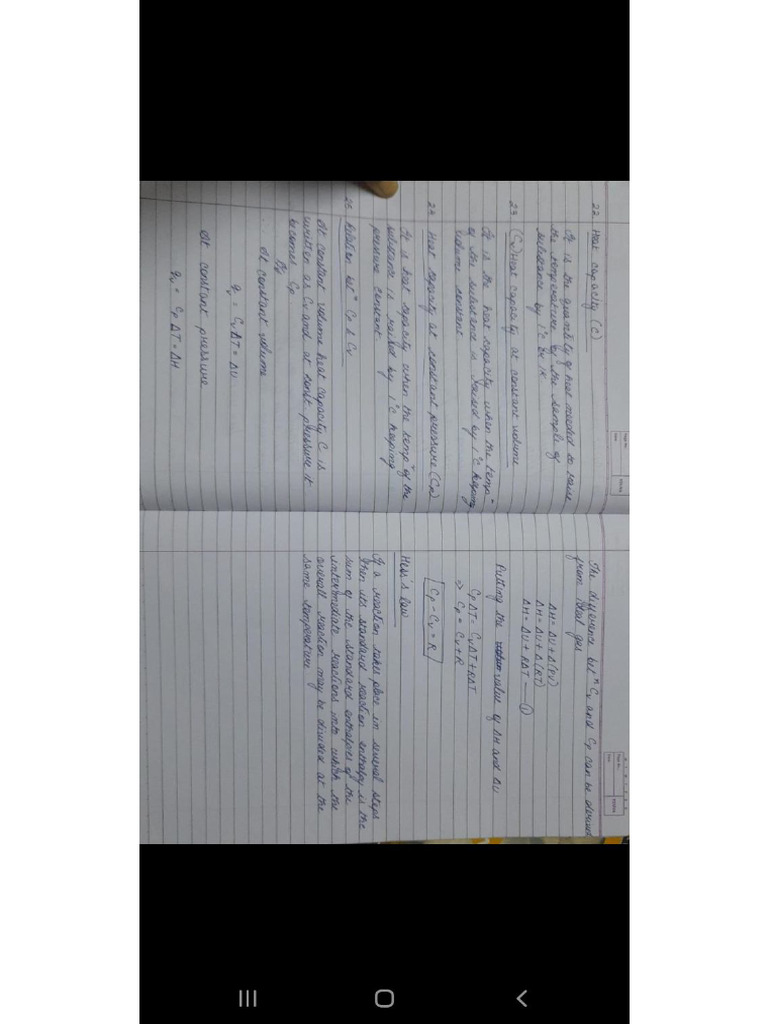 22. Heat capacity (C)
It is the quantity of heat needed to raise
the temperature of the sample of
substance by 1°C or 1K
23 (Cv) Heat capacity at constant volume
It is the heat capacity when the tempⁿ
of the substance is raised by 1°C keeping
volume constant
24 Heat capacity at constant pressure (Cp)
It is heat capacity when the tempⁿ of the
substance is raised by 1°C keeping
pressure constant.
25 Relation betⁿ Cp & Cv
At constant volume heat capacity C is
written as Cv and at const pressure it
becomes Cp
∴ At constant volume
qv = Cv ΔT = ΔU
At constant pressure
qv = Cp ΔT = ΔH
Page No.
Date
The difference betⁿ Cv and Cp can be derived
from ideal gas
ΔH = ΔU + Δ(PV)
ΔH = ΔU + Δ(RT)
ΔH = ΔU + RΔT — ①
Putting the value of ΔH and ΔU
CpΔT = CvΔT + RΔT
⇒ Cp = Cv + R
Cp - Cv = R
Hess's Law
If a reaction takes place in several steps
then its standard reaction enthalpy is the
sum of the standard enthalpies of the
intermediate reactions into which the
overall reaction may be divided at the
same temperature
Page No.
Date